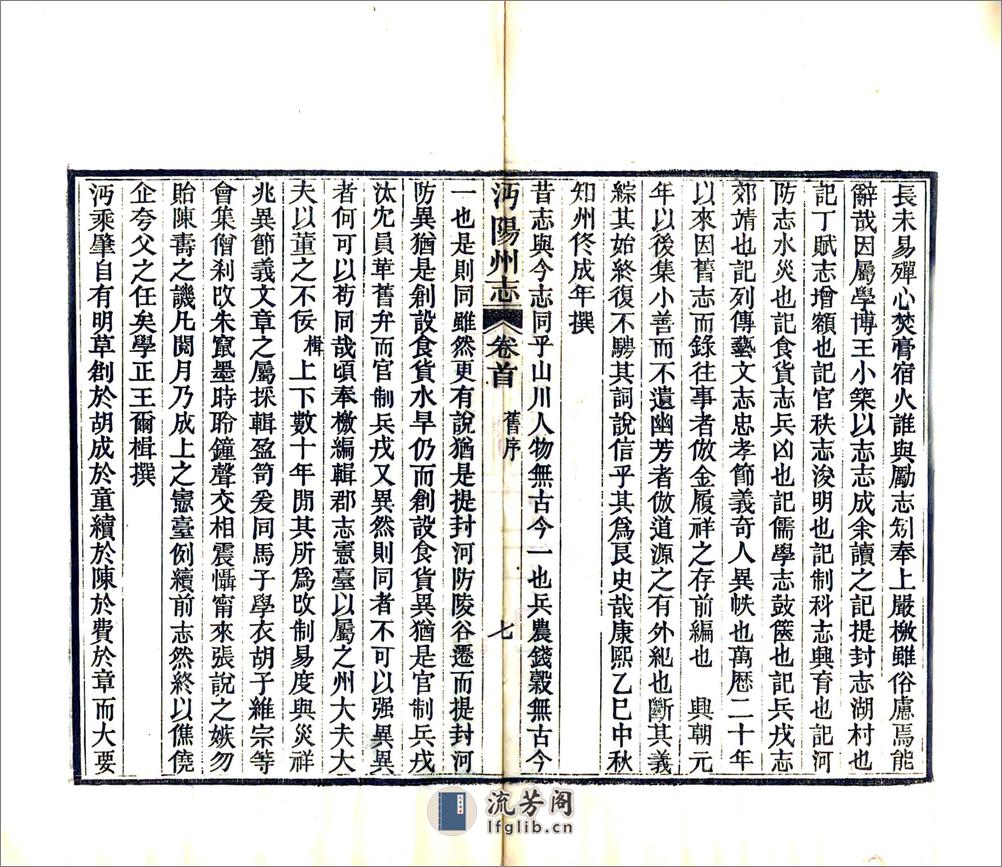 長未易殫心焚膏宿火誰與勵志矧奉上嚴檄雖俗慮焉能
辭哉因屬學博王小築以志志成余讀之記提封志湖村也
記丁賦志增額也記官秩志浚明也記制科志興育也記河
防志水災也記食貨志兵凶也記儒學志鼓篋也記兵戎志
郊靖也記列傳藝文志忠孝節義奇人異帙也萬歷二十年
以來因舊志而錄往事者倣金履祥之存前編也 興朝元
年以後集小善而不遺幽芳者倣道源之有外紀也斷其義
綜其始終復不騁其詞說信乎其爲良史哉康熙乙巳中秋
知州佟成年撰
昔志與今志同乎山川人物無古今一也兵農錢穀無古今
沔陽州志 卷首 舊序 七
一也是則同雖然更有說猶是提封河防陵谷遷而提封河
防異猶是創設食貨水旱仍而創設食貨異猶是官制兵戎
汰宂員革舊弁而官制兵戎又異然則同者不可以强異異
者何可以苟同哉頃奉檄編輯郡志憲臺以屬之州大夫大
夫以董之不佞楫上下數十年閒其所爲攺制易度與災祥
兆異節義文章之屬採輯盈笥爰同馬子學衣胡子維宗等
會集僧刹攺朱竄墨時聆鐘聲交相震懾甯來張說之嫉勿
貽陳壽之譏凡閱月乃成上之憲臺例續前志然終以僬僥
企夸父之任矣學正王爾楫撰
沔乘肇自有明草創於胡成於童續於陳於費於章而大要
流芳阁
lfglib.cn